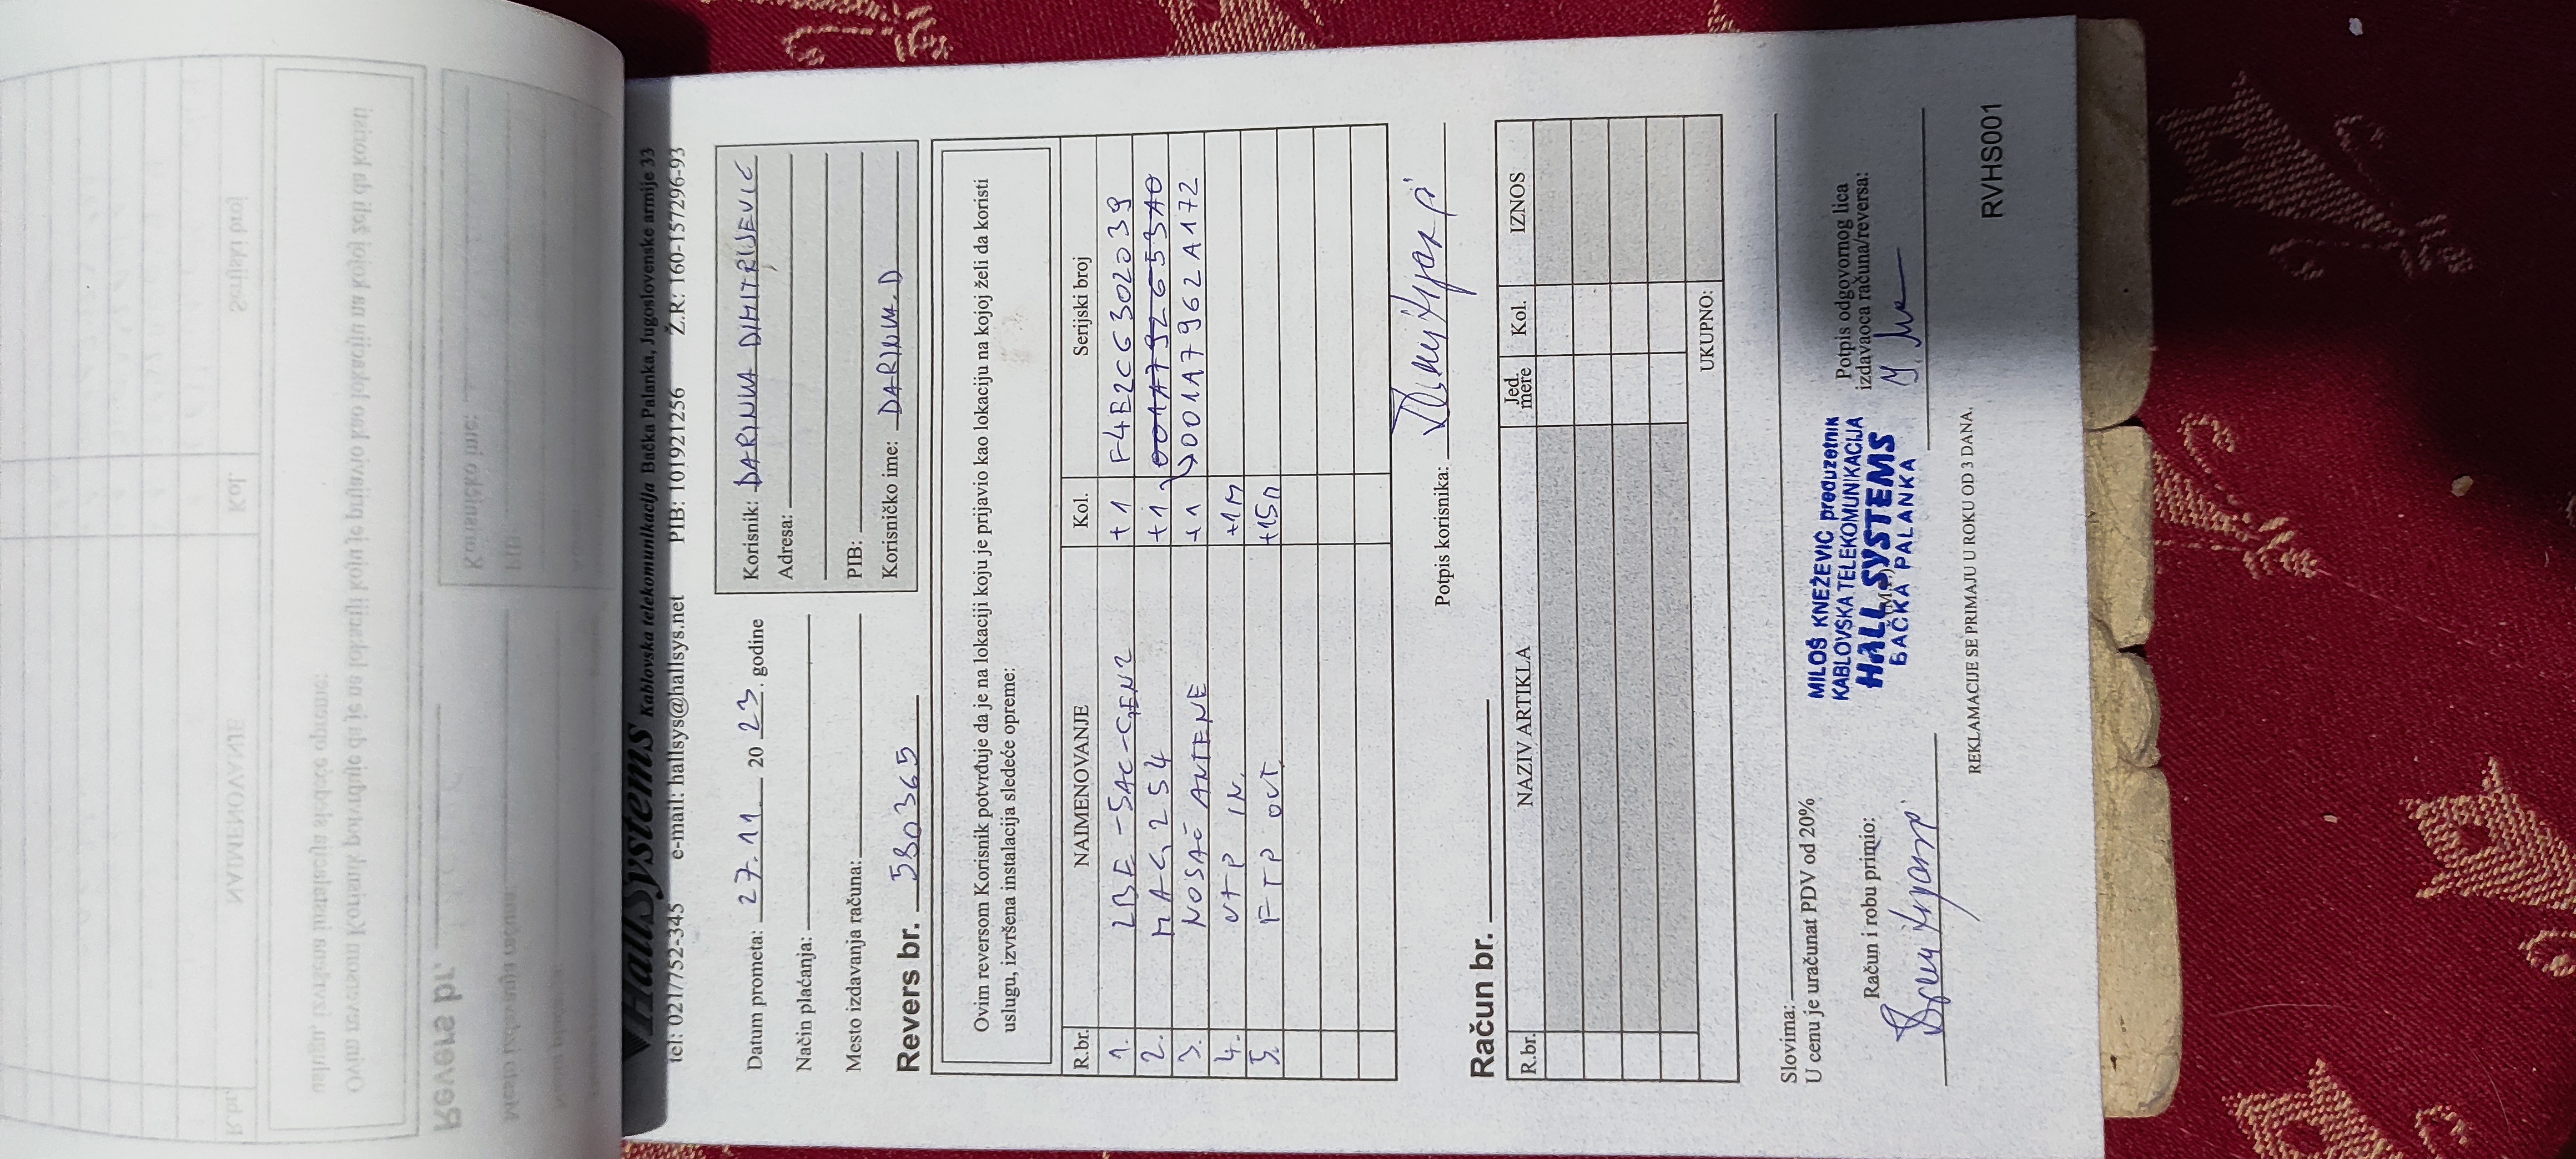 HallSystems Kablovska telekomunikacija Bačka Palanka, Jugoslovenske armije 33
tel: 021/752-345 e-mail: hallsys@hallsys.net PIB: 101921256 Ž.R: 160-157296-93
Datum prometa: 27.11 20 23. godine
Način plaćanja:
Mesto izdavanja računa:
Revers br. 580365
Korisnik: DARINKA DIMITRIJEVIĆ
Adresa:
PIB:
Korisničko ime: DARINKA.D
Ovim reversom Korisnik potvrđuje da je na lokaciji koju je prijavio kao lokaciju na kojoj želi da koristi
uslugu, izvršena instalacija sledeće opreme:
R.br. NAIMENOVANJE Kol. Serijski broj
1. LBE-5AC-GEN2 +1 F4E2C6302039
2. MAG 254 +1 001A792653A0
3. NOSAČ ANTENE +1 001A7962A172
4. UTP IN +1M
5. FTP OUT +15M
Potpis korisnika:
Račun br.
R.br. NAZIV ARTIKLA Jed. mere Kol. IZNOS
UKUPNO:
Slovima:
U cenu je uračunat PDV od 20%
Račun i robu primio:
MILOŠ KNEŽEVIĆ preduzetnik
KABLOVSKA TELEKOMUNIKACIJA
HALL SYSTEMS
BAČKA PALANKA
Potpis odgovornog lica
izdavaoca računa/reversa:
REKLAMACIJE SE PRIMAJU U ROKU OD 3 DANA.
RVHS001